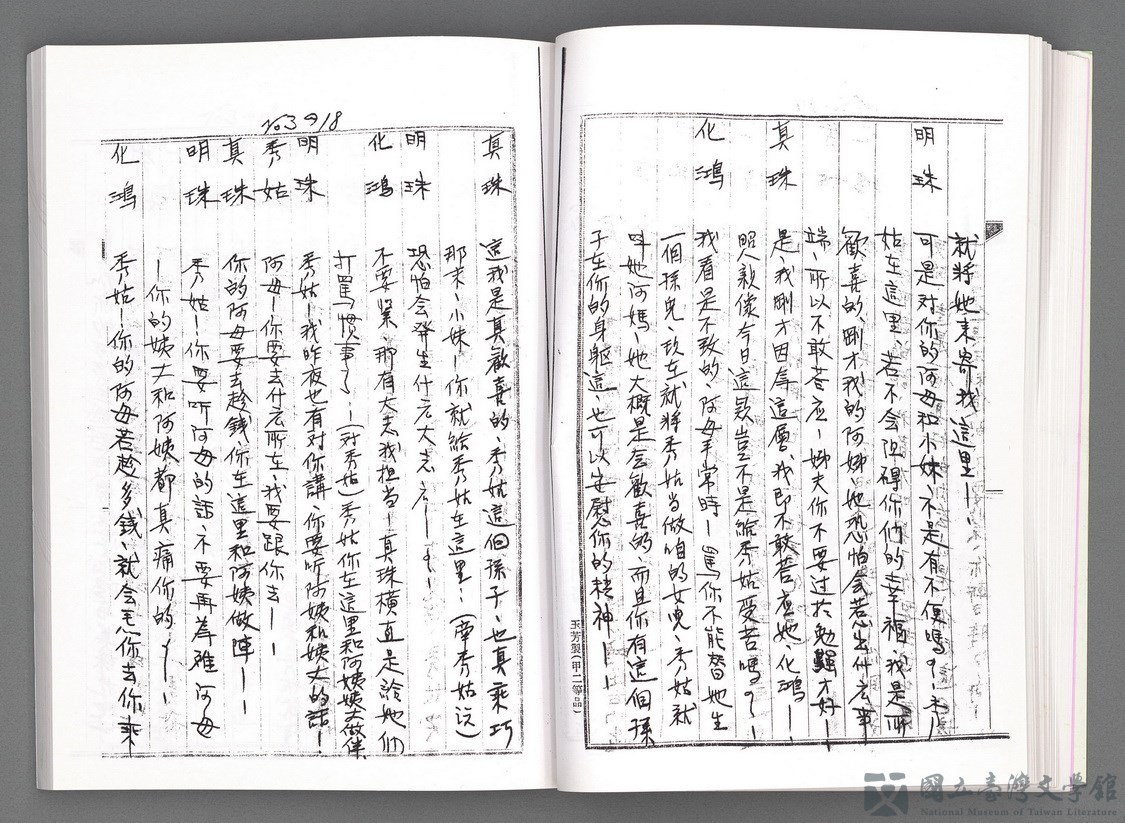 就將她來寄我這里——
明珠 可是对你的阿母和小妹、不是有不便嗎？秀
姑在這里、若不会阻碍你們的幸福、我是所
歡喜的、剛才我的阿姊、她恐怕会惹出什么事
端、所以不敢荅应、姊夫你不要过於勉難才好——
真珠 是、我剛才因為這層、我即不敢荅应她、化鴻——
照人款像今日這款豈不是給秀姑受苦嗎？——
化鴻 我看是不致的、阿母平常時——罵你不能替她生
一個孫兒、現在就將秀姑当做咱的女兒、秀姑就
呌她阿媽、她大概是会歡喜的、而且你有這個孩
子在你的身軀邊、也可以安慰你的精神——
玉芳製（甲二等品）
No3 918
真珠 這我是真歡喜的、秀姑這個孩子、也真乖巧
那末、小妹——你就給秀姑在這里——（牽秀姑說）
明珠 恐怕会発生什么大志么——
化鴻 不要緊、那有大夫我担当——真珠橫直是給她們
打罵慣事了——（对秀姑）秀姑你在這里和阿姨姨大做伴、
明珠 秀姑——我昨夜也有对你講、你要听阿姨和姨大的話——
秀姑 阿母——你要去什么所在、我要跟你去——
真珠 你的阿母要去趁錢你在這里和阿姨做陣——
明珠 秀姑——你要听阿母的話、不要再為难阿母
——你的姨丈和阿姨都真痛你的——
化鴻 秀姑——你的阿母若趁多錢、就会毛你去、你乖
國立臺灣文學館
National Museum of Taiwan Literature